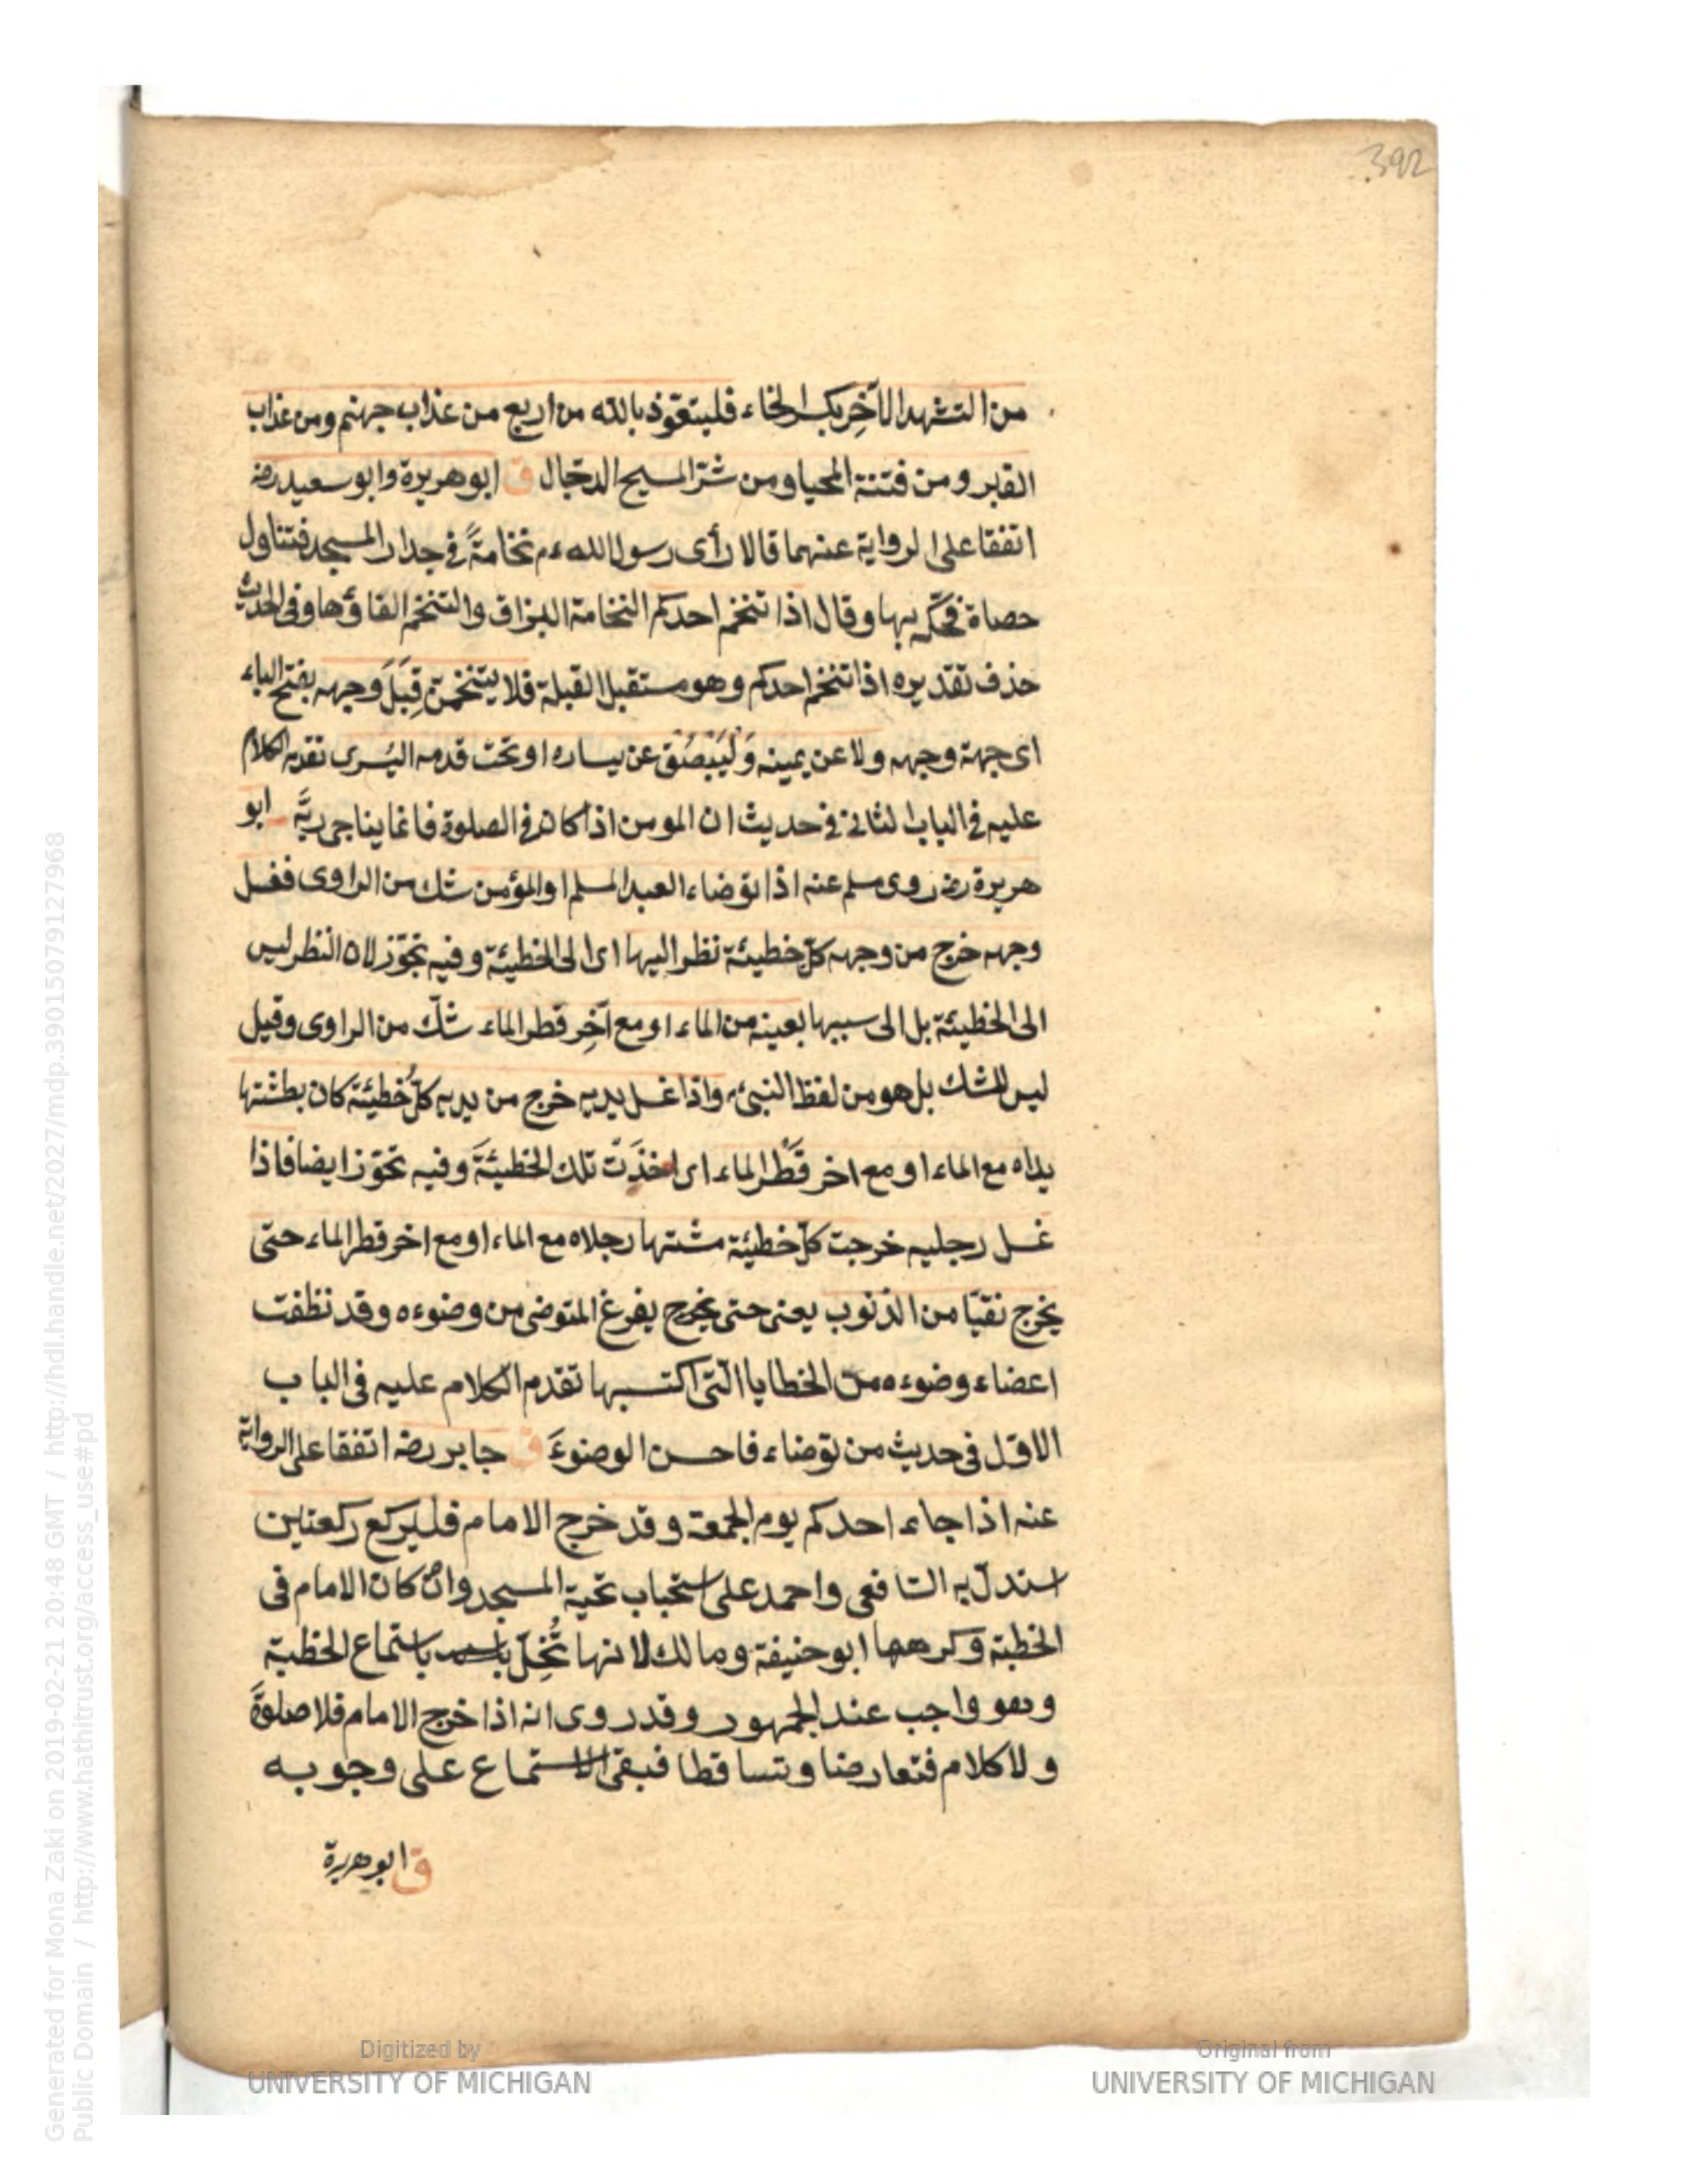 392
من التشهد الآخِر بكسر الخاء فليتعوّذ بالله من اربع من عذاب جهنم ومن عذاب
القبر ومن فتنة المحيا ومن شرّ المسيح الدجّال ق ابو هريرة وابو سعيد رضه
اتفقا على الرواية عنهما قالا رأى رسول الله ءم نخامةً فى جدار المسجد فتناول
حصاة فحكّه بها وقال اذا تنخم احدكم النخامة البزاق والتنخم القاؤها وفى الحديث
حذف تقديره اذا تنخم احدكم وهو مستقبل القبلة فلا يتنخمنّ قِبَلَ وجهه بفتح الباء
اى جهة وجهه ولا عن يمينه وَلْيَبْصُقْ عن يساره او تحت قدمه اليُسرى تقدم الكلام
عليه فى الباب الثانى فى حديث ان المومن اذا كان فى الصلوة فانما يناجى ربّه ابو
هريرة رضه روى مسلم عنه اذا توضاء العبد المسلم او المؤمن شك من الراوى فغسل
وجهه خرج من وجهه كلّ خطيئة نظر اليها اى الى الخطيئة وفيه تجوّز لان النظر ليس
الى الخطيئة بل الى سببها بعينه من الماء او مع آخِر قطر الماء شكّ من الراوى وقيل
ليس للشك بل هو من لفظ النبىء واذا غسل يديه خرج من يديه كلُّ خطيئة كان بطشتها
يداه مع الماء او مع اخر قَطْر الماء اى اخذَتْ تلك الخطيئةَ وفيه تجوّز ايضا فاذا
غسل رجليه خرجت كلّ خطيئة مشتها رجلاه مع الماء او مع اخر قطر الماء حتى
يخرج نقيّا من الذنوب يعنى حتى يخرج يفرغ المتوضى من وضوءه وقد نظفت
اعضاء وضوءه من الخطايا الّتى اكتسبها تقدم الكلام عليه فى الباب
الاوّل فى حديث من توضاء فاحسن الوضوءَ ق جابر رضه اتفقا على الرواية
عنه اذا جاء احدكم يوم الجمعة وقد خرج الامام فليركع ركعتين
استدلّ به الشافعى واحمد على استحباب تحية المسجد وان كان الامام فى
الخطبة وكرهها ابو حنيفة ومالك لانها تُخِلّ باستماع الخطبة
وهو واجب عند الجمهور وقد روى انه اذا خرج الامام فلا صلوةَ
ولا كلام فتعارضا وتساقطا فبقى الاستماع على وجوبه
ق ابو هريرة
Generated for Mona Zaki on 2019-02-21 20:48 GMT / http://hdl.handle.net/2027/mdp.39015079127968
Public Domain / http://www.hathitrust.org/access_use#pd
Digitized by
UNIVERSITY OF MICHIGAN
Original from
UNIVERSITY OF MICHIGAN